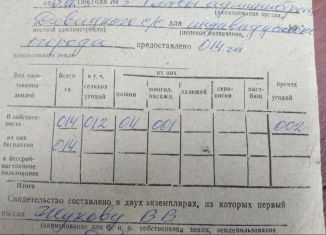 (наименование органа,
местной администрации) (целевое назначение,
огорода предоставлено 014 га
использование земли)
Вид пользования землей Всего га в т. ч. сельхоз угодий из них прочих угодий
пашни многол. насажд. залежей сенокосов пастбищ
В собственность 014 012 04 061 002
из них бесплатно 014
в бессрочное (постоянное) пользование
Итого
Свидетельство составлено в двух экземплярах, из которых первый
выдан Жукову В В
(наименование или ф. и. о. собственника земли, землепользователя